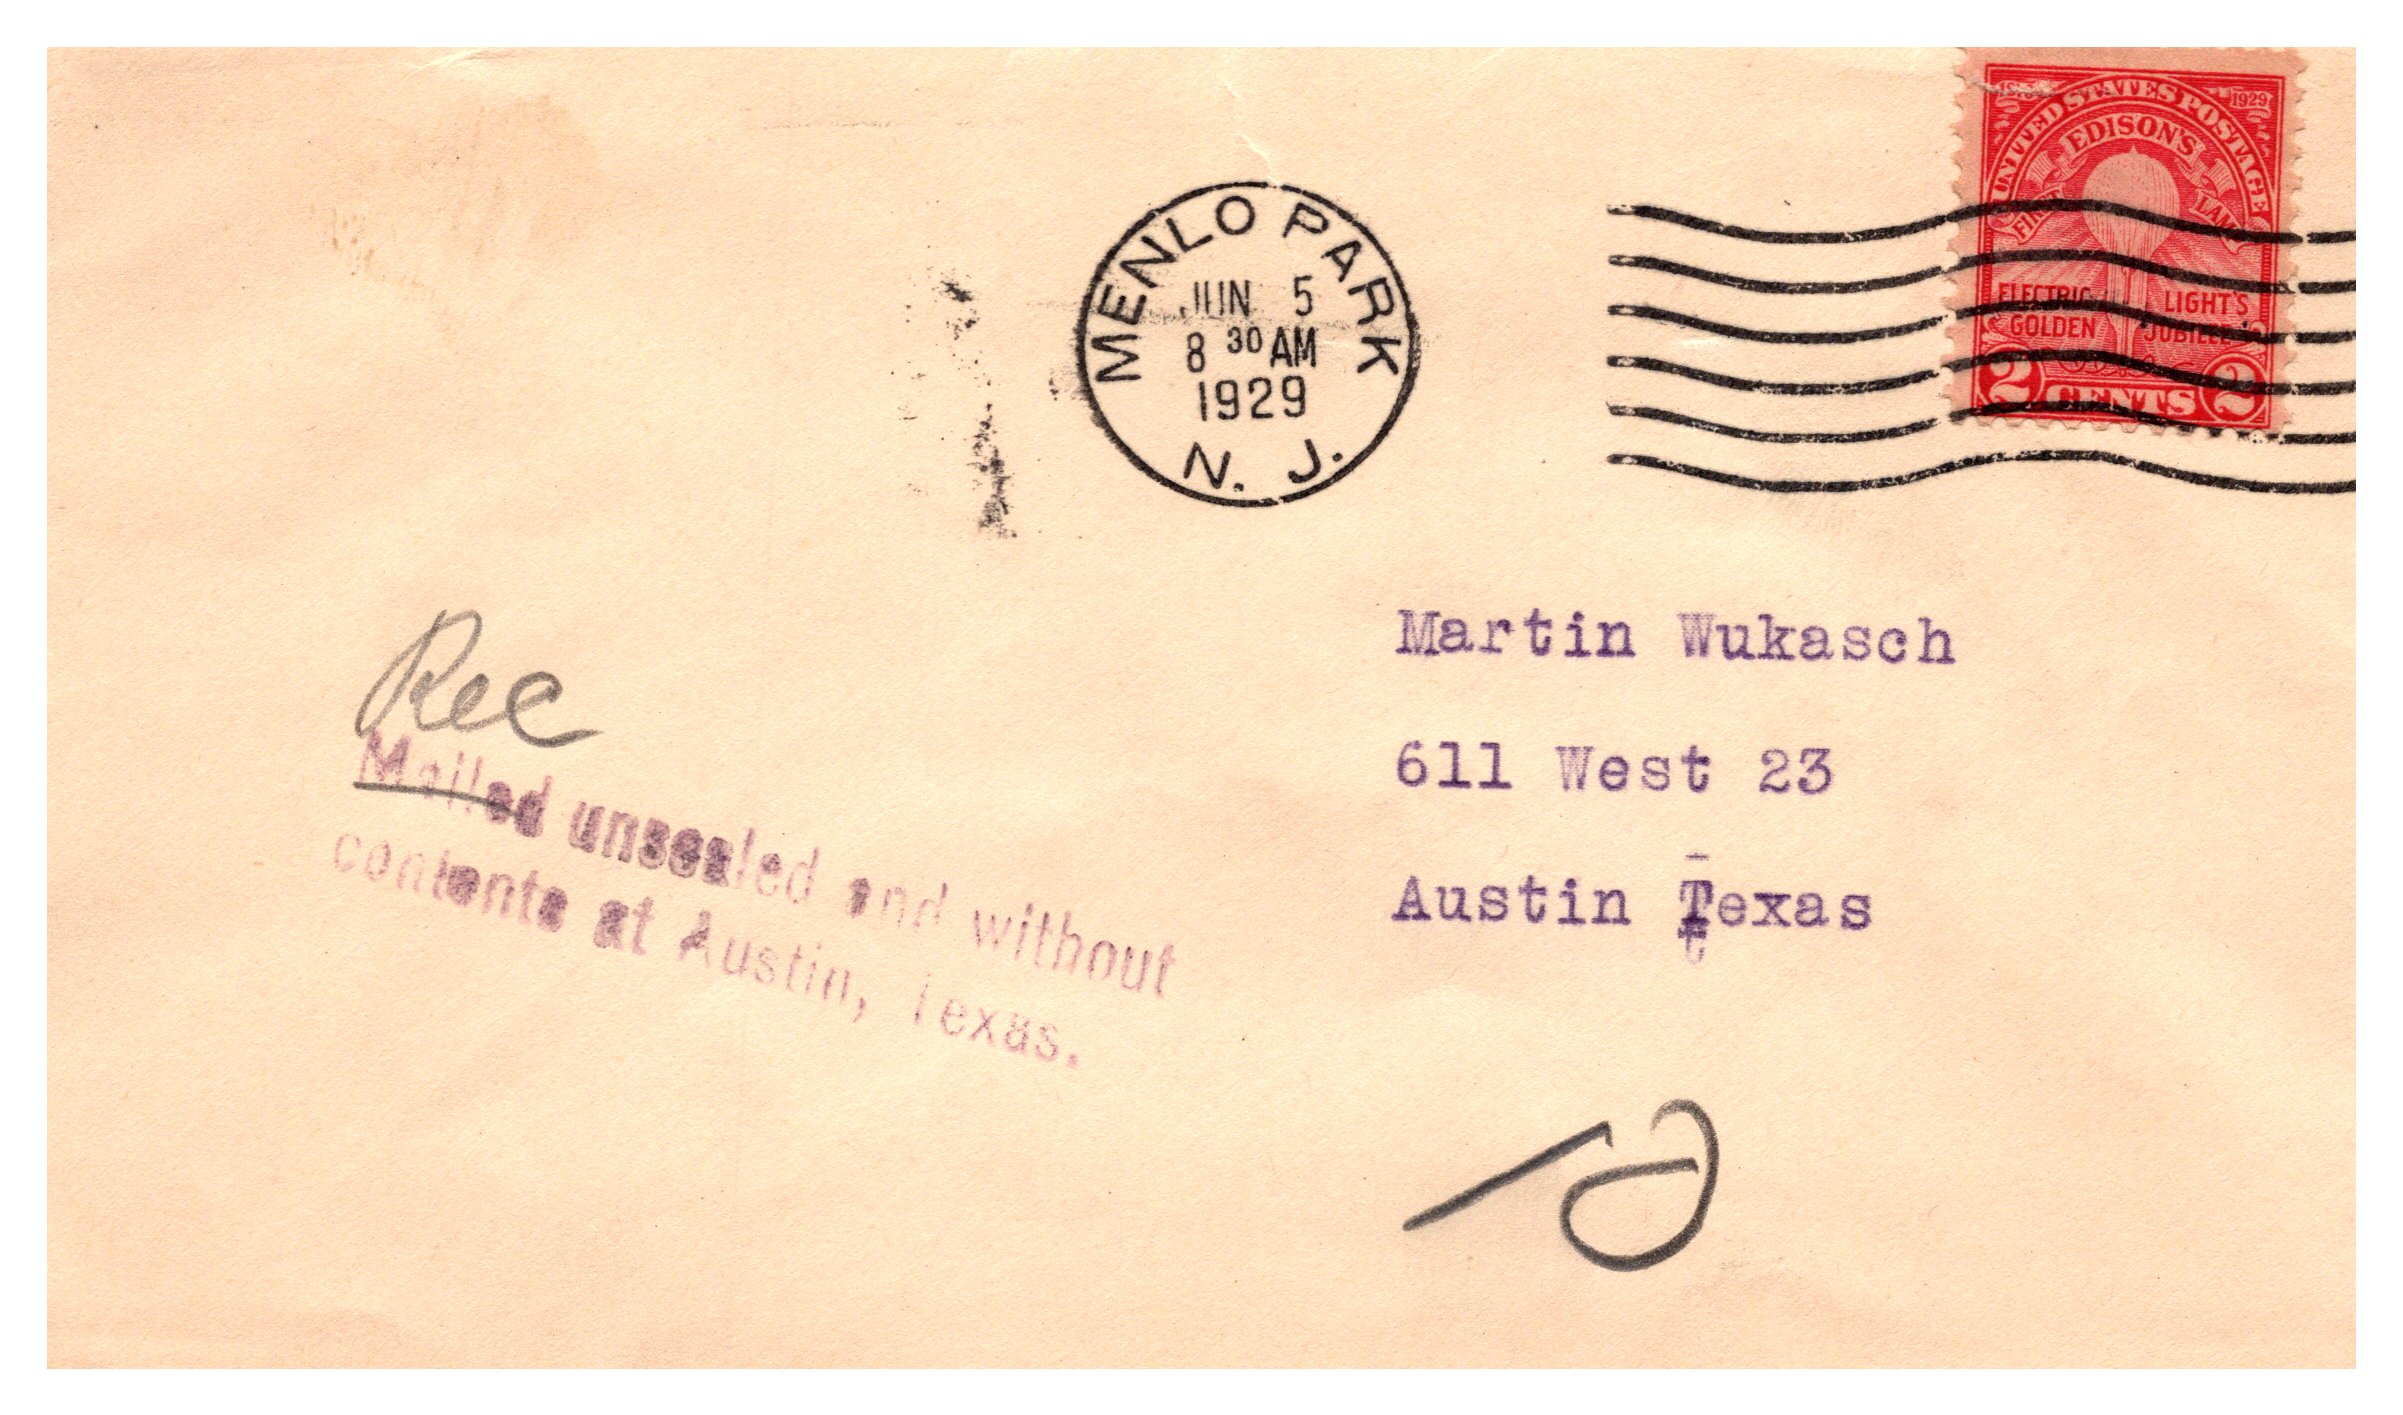 1879 1929
UNITED STATES POSTAGE
EDISON'S
FIRST LAMP
ELECTRIC LIGHT'S
GOLDEN JUBILEE
2 CENTS 2
MENLO PARK
JUN 5
8 30 AM
1929
N. J.
Rec
Mailed unsealed and without
contents at Austin, Texas.
Martin Wukasch
611 West 23
Austin Texas